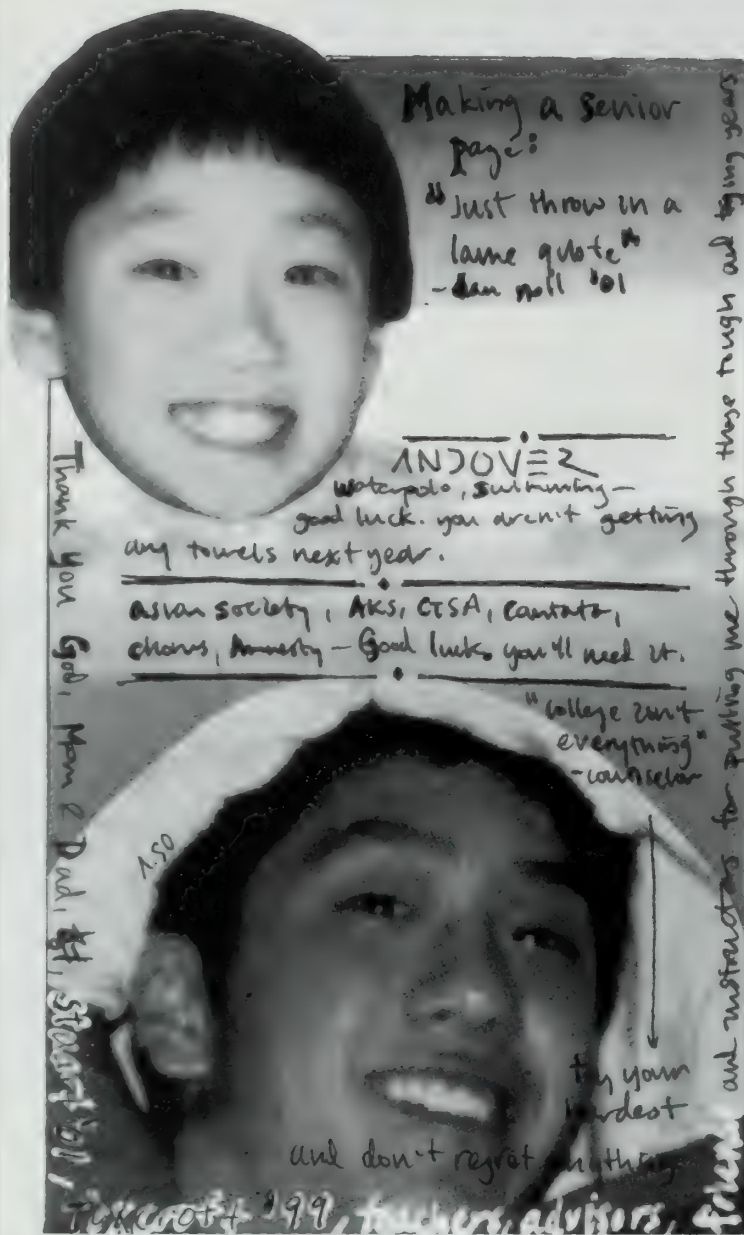 Making a senior
page:
"Just throw in a
lame quote"
- '01
ANDOVER
waterpolo, swimming —
good luck. you aren't getting
any towels next year.
asian society, AKS, CTSA, cantata,
chorus, Amnesty — Good luck, you'll need it.
"college isn't
everything"
- counselor
try your
hardest
and don't regret anything
1.50
Thank you God, Mom & Dad, Stuart '01,
'99, teachers, advisors, friends
and instructors for putting me through those tough and trying years